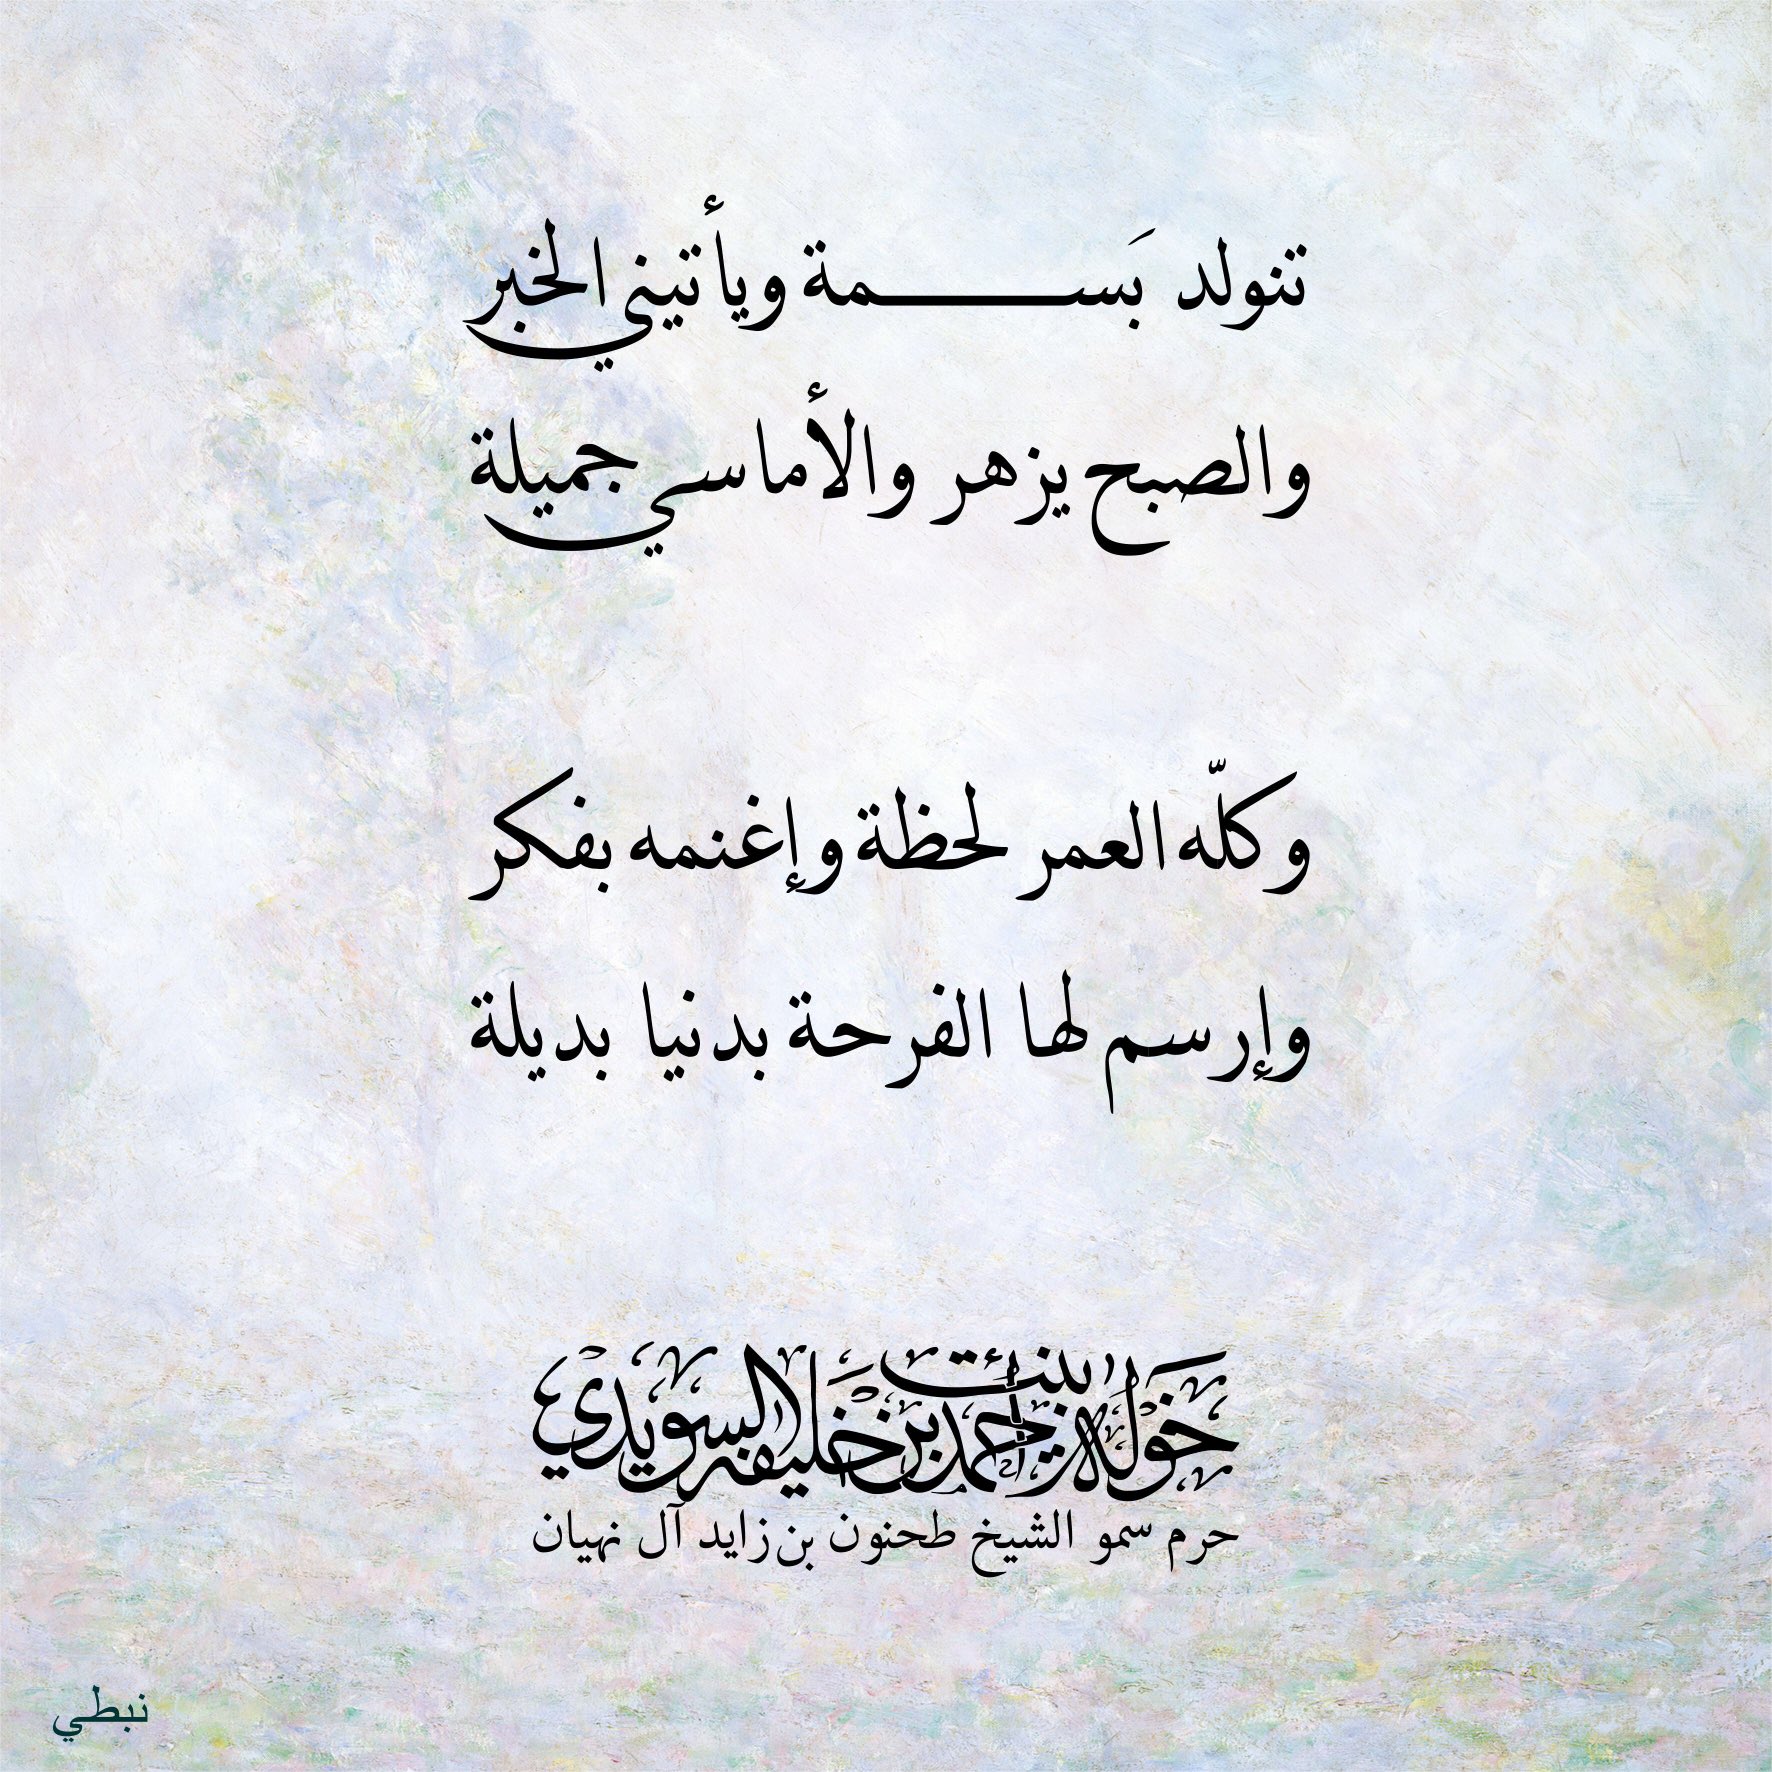 تنولد بَسمة ويأتيني الخبر
والصبح يزهر والأماسي جميلة
وكلّه العمر لحظة وإغنمه بفكر
وإرسم لها الفرحة بدنيا بديلة
خولة بنت أحمد بن خليفة السويدي
حرم سمو الشيخ طحنون بن زايد آل نهيان
نبطي